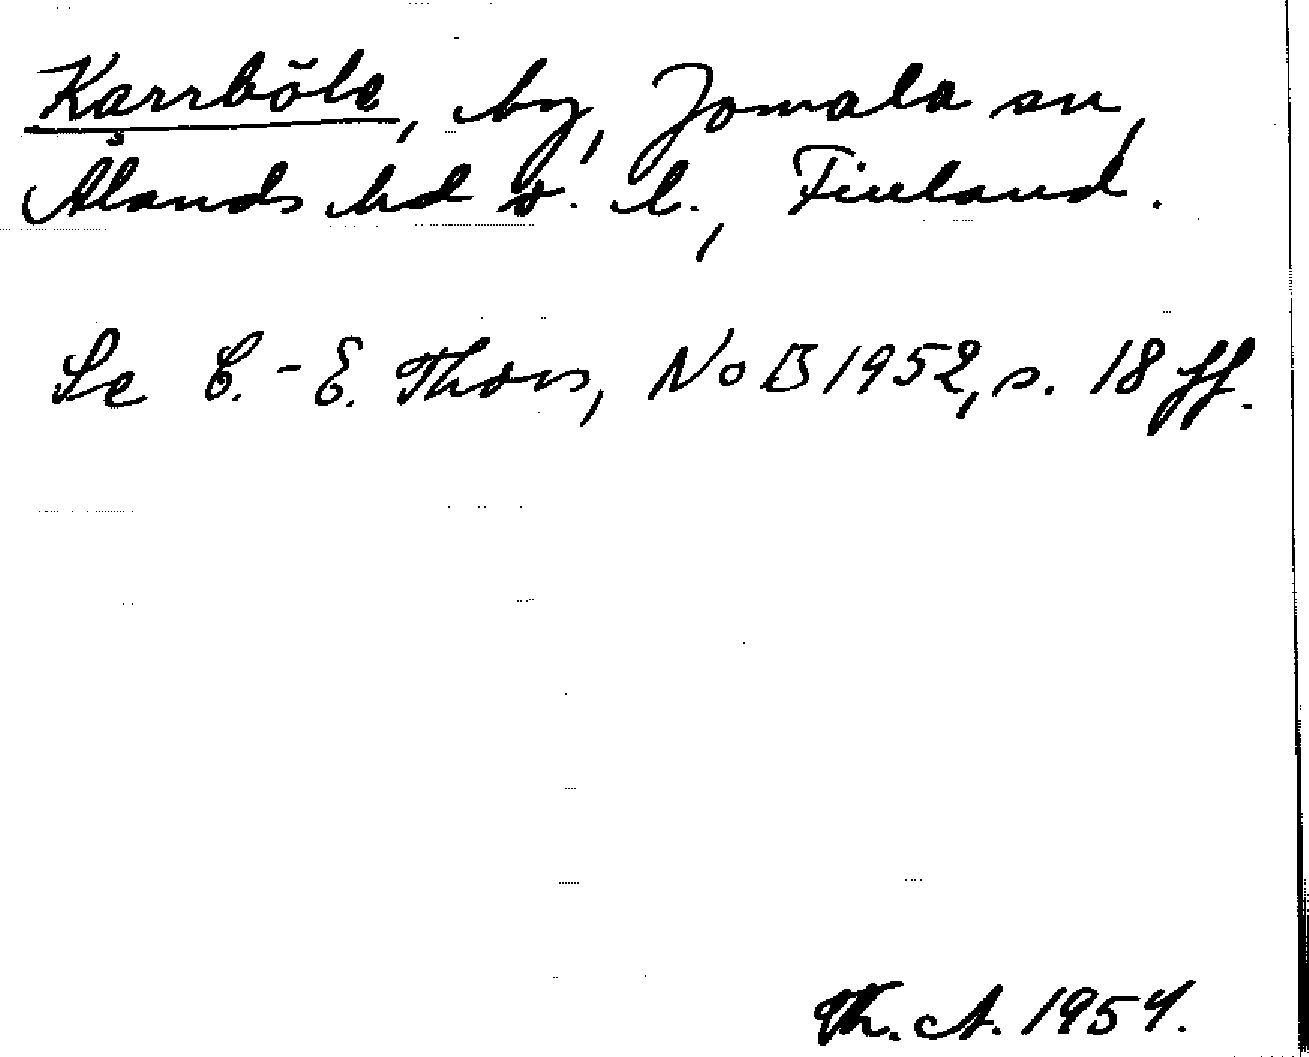 Karrböle, by, Jomala sn,
Ålands hd o. l., Finland.
Se C.-E. Thors, NoB 1952, s. 18 ff.
Th. A. 1954.